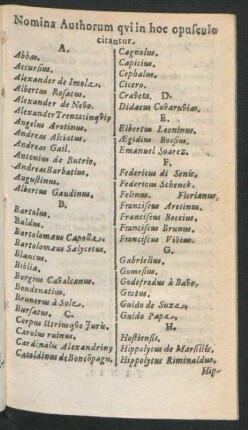 Nomina Authorum qvi in hoc opusculo
citantur.
A.
Abbas.
Accursius.
Alexander de Imola.
Albertus Rosatus.
Alexander de Nevo.
Alexander Trentacinqviꝰ
Angelus Aretinus.
Andreas Alciatus.
Andreas Gail.
Antonius de Butrio.
Andreas Barbatius.
Augustinus.
Albertus Gandinus.
B.
Bartolus.
Baldus.
Bartolomæus Capolla.
Bartolomæus Salycetus.
Blancus.
Biblia.
Borgius Cavalcanus.
Bondenatius.
Brunorus à Sole.
Bursatus. C.
Corpus Utriusqve Juris.
Carolus ruinus.
Cardinalis Alexandrinꝰ
Cataldinus de Boncōpagn.
Cagnolus.
Capicius.
Cephalus.
Cicero.
Craveta. D.
Didacus Covaruvias.
E.
Elbertus Leoninus.
Ægidius Bossius.
Emanuel Soarez.
F.
Federicus di Senis.
Federicus Schenck.
Felinus. Florianus.
Franciscus Aretinus.
Franciscus Beccius.
Franciscus Brunus.
Franciscus Vivius.
G.
Gabrielius.
Gomesius.
Godofredus à Bavo.
Grotus.
Guido de Suza.
Guido Papa.
H.
Hostiensis.
Hippolytus de Marsiliis.
Hippolytus Riminaldus.
Hip-